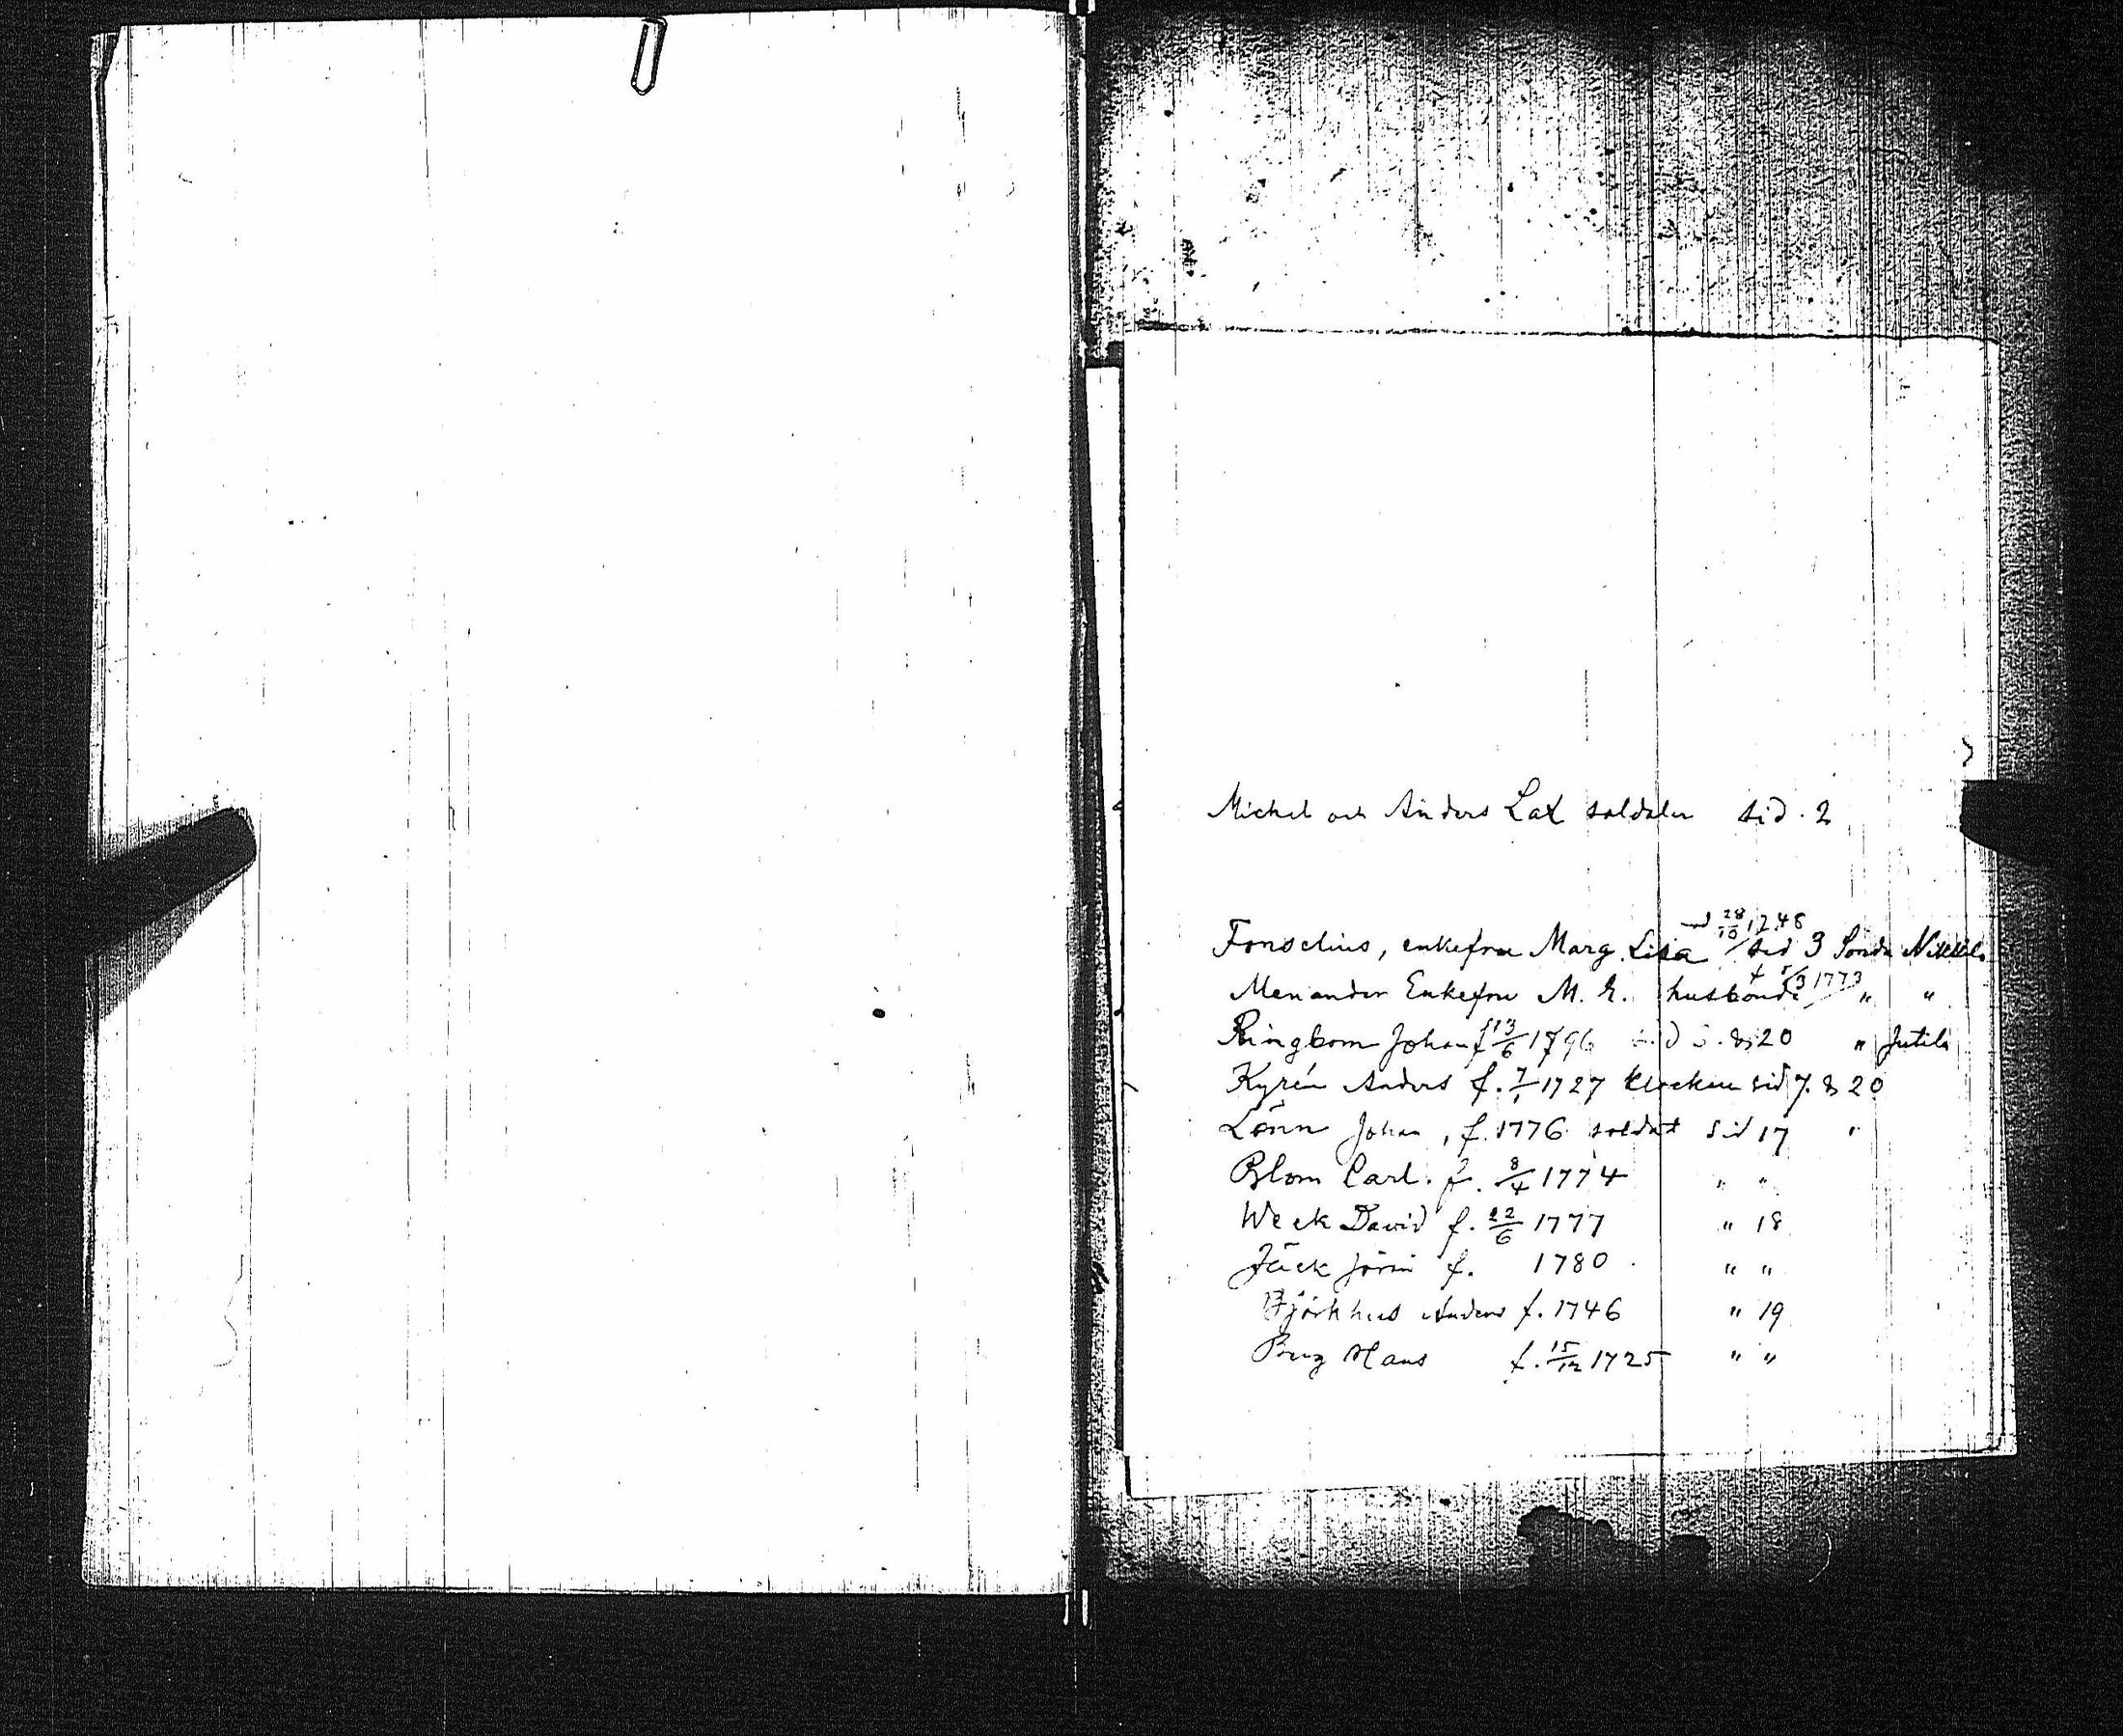 Michel och Anders Lax soldater sid. 2
28/10 1748
Fonselius, enkefru Marg. Lisa sid 3 Nikkilä
† 5/3 1773
Menander Enkefru M. E. husbonde " "
Ringbom Johan f 13/6 1796 & 20 " Jutila
Kyrén Anders f. 7/1 1727 klockare sid 7. & 20
Lönn Johan, f. 1776 soldat sid 17 "
Blom Carl. f. 8/4 1774 " "
Week David f. 22/6 1777 " 18
Jäck Jöran f. 1780 " "
Björkhus Anders f. 1746 " 19
Hans f. 15/12 1725 " "